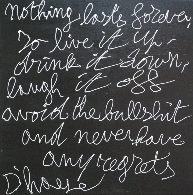 nothing lasts forever,
So live it up -
drink it down,
laugh it off
avoid the bullshit
and never have
any regrets
D'haese